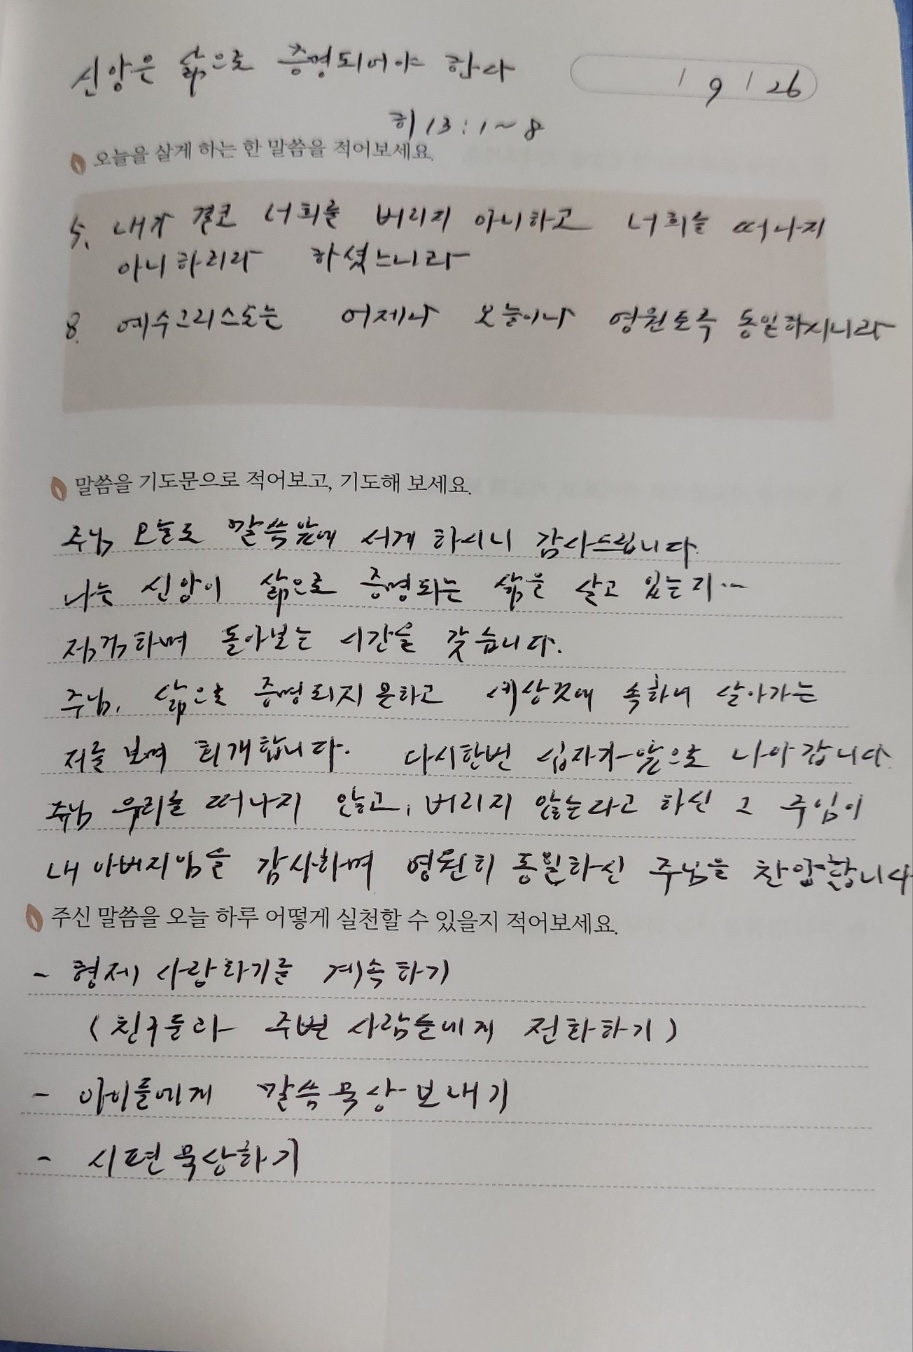 신앙은 삶으로 증명되어야 한다
/ 9 / 26
히 13 : 1 ~ 8
오늘을 살게 하는 한 말씀을 적어보세요.
5. 내가 결코 너희를 버리지 아니하고 너희를 떠나지
아니하리라 하셨느니라
8. 예수그리스도는 어제나 오늘이나 영원토록 동일하시니라
말씀을 기도문으로 적어보고, 기도해 보세요.
주님 오늘도 말씀앞에 서게 하시니 감사드립니다.
나는 신앙이 삶으로 증명되는 삶을 살고 있는지...
점검하며 돌아보는 시간을 갖습니다.
주님, 삶으로 증명되지 못하고 세상것에 속하여 살아가는
저를 보며 회개합니다. 다시한번 십자가앞으로 나아갑니다.
주님 우리를 떠나지 않고, 버리지 않는다고 하신 그 주임이
내 아버지임을 감사하며 영원히 동일하신 주님을 찬양합니다
주신 말씀을 오늘 하루 어떻게 실천할 수 있을지 적어보세요.
- 형제 사랑하기를 계속하기
(친구들과 주변 사람들에게 전화하기)
- 아이들에게 말씀묵상보내기
- 시편묵상하기